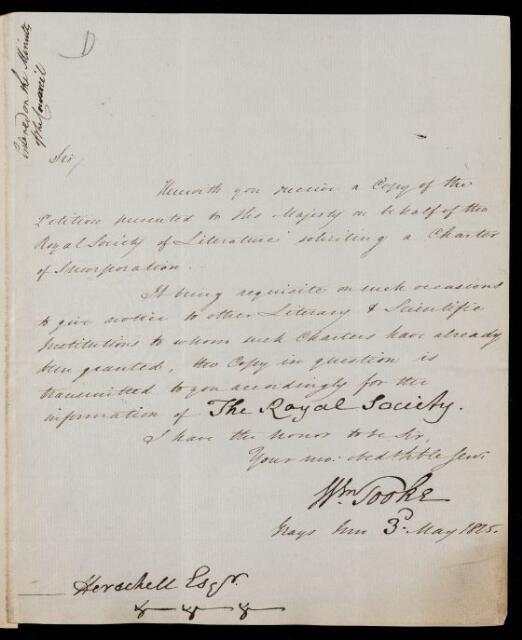 Entered on the Minutes
of the Council
D
Sir,
Herewith you receive a Copy of the
Petition presented to His Majesty on behalf of the
Royal Society of Literature soliciting a Charter
of Incorporation.
It being requisite on such occasions
to give notice to other Literary & Scientific
Institutions to whom such Charters have already
been granted, the Copy in question is
transmitted to you accordingly for the
information of The Royal Society.
I have the honor to be Sir,
Your mo: obed
Wm Tooke
Grays Inn 3d May 1825.
Herschell Esqr.